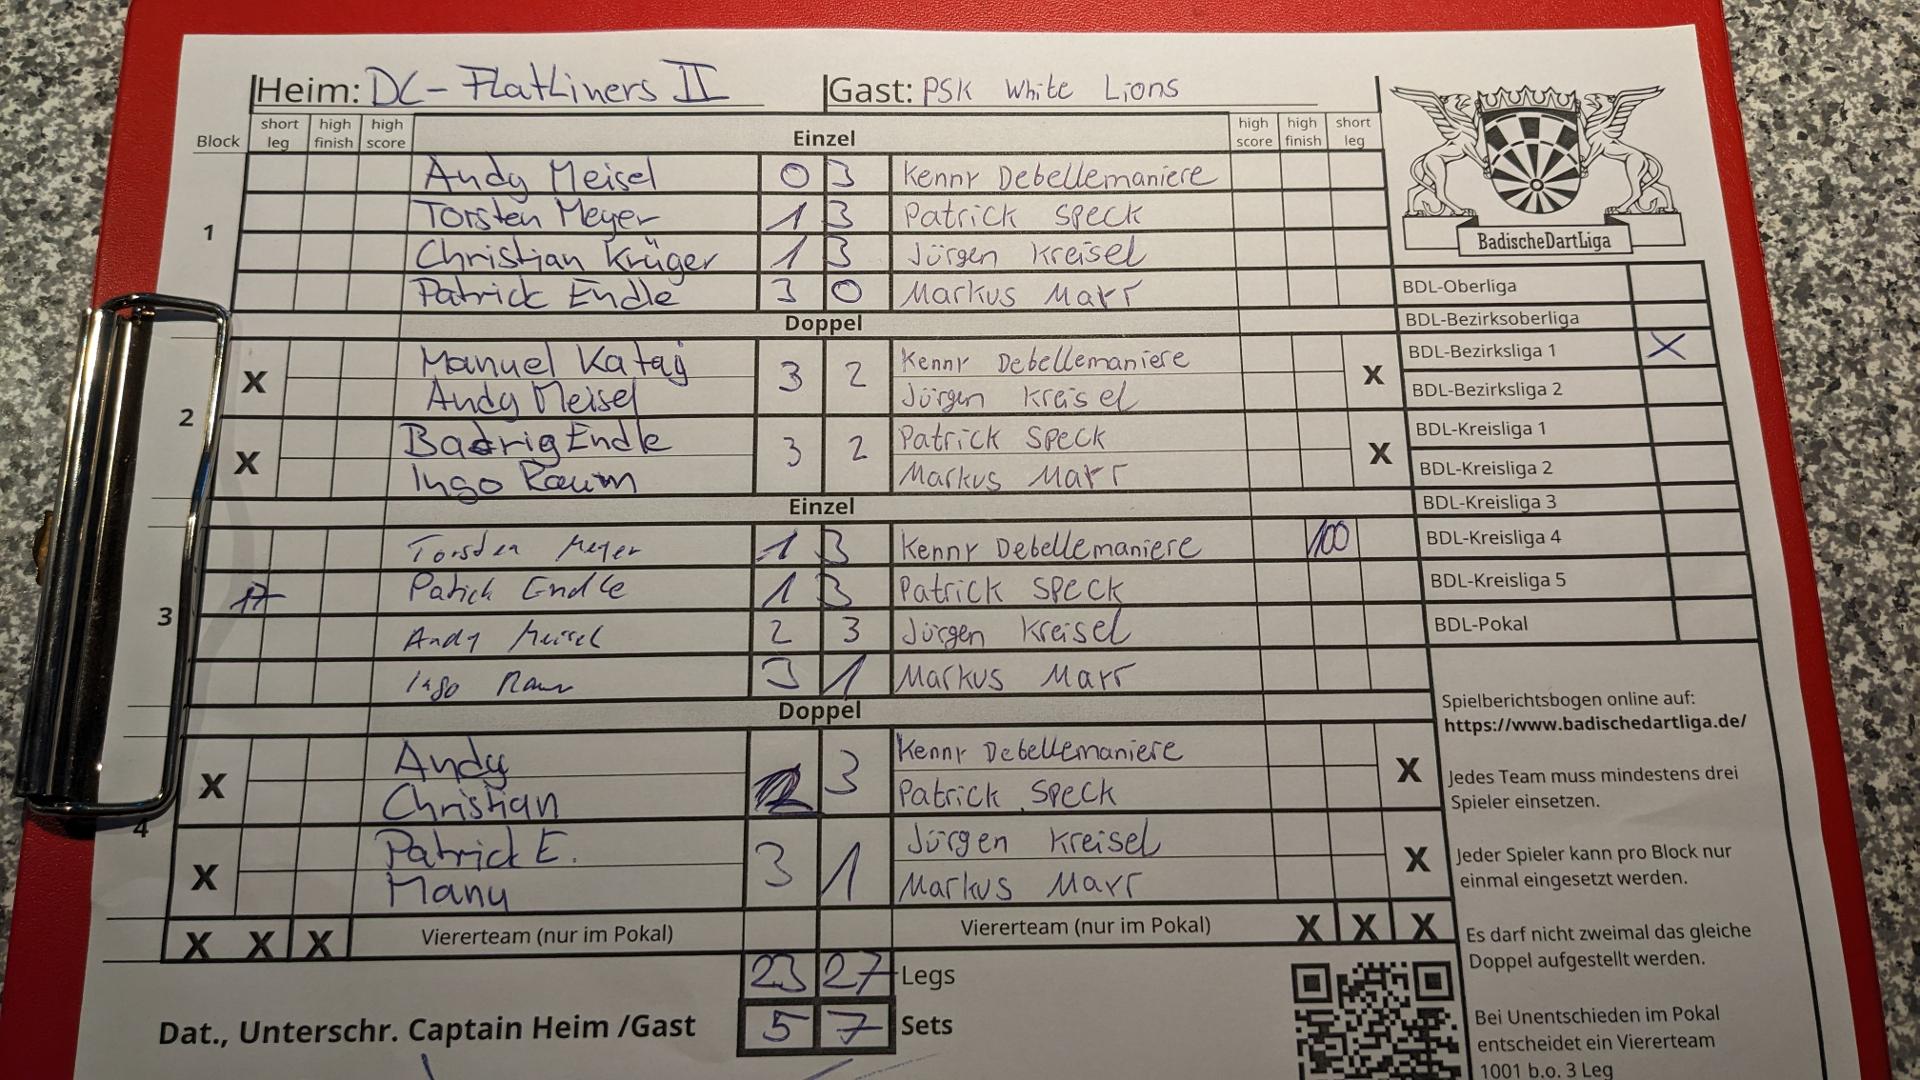 Heim: DC-FlatLiners II Gast: PSK White Lions
Block short leg high finish high score Einzel high score high finish short leg
1
Andy Meisel 0 3 Kenny Debellemaniere
Torsten Meyer 1 3 Patrick Speck
Christian Krüger 1 3 Jürgen Kreisel
Patrick Endle 3 0 Markus Marr
Doppel
2
X Manuel Kataj 3 2 Kenny Debellemaniere X
Andy Meisel Jürgen Kreisel
X Badrig Endle 3 2 Patrick Speck X
Ingo Raum Markus Marr
Einzel
3
Torsten Meyer 1 3 Kenny Debellemaniere 100
17 Patick Endle 1 3 Patrick Speck
Andy Meisel 2 3 Jürgen Kreisel
Ingo Raum 3 1 Markus Marr
Doppel
4
X Andy 2 3 Kenny Debellemaniere X
Christian Patrick Speck
X Patrick E. 3 1 Jürgen Kreisel X
Manu Markus Marr
X X X Vierterteam (nur im Pokal) Vierterteam (nur im Pokal) X X X
23 27 Legs
Dat., Unterschr. Captain Heim /Gast 5 7 Sets
BadischeDartLiga
BDL-Oberliga
BDL-Bezirksoberliga
BDL-Bezirksliga 1 X
BDL-Bezirksliga 2
BDL-Kreisliga 1
BDL-Kreisliga 2
BDL-Kreisliga 3
BDL-Kreisliga 4
BDL-Kreisliga 5
BDL-Pokal
Spielberichtsbogen online auf:
https://www.badischedartliga.de/
Jedes Team muss mindestens drei
Spieler einsetzen.
Jeder Spieler kann pro Block nur
einmal eingesetzt werden.
Es darf nicht zweimal das gleiche
Doppel aufgestellt werden.
Bei Unentschieden im Pokal
entscheidet ein Viererteam
1001 b.o. 3 Leg